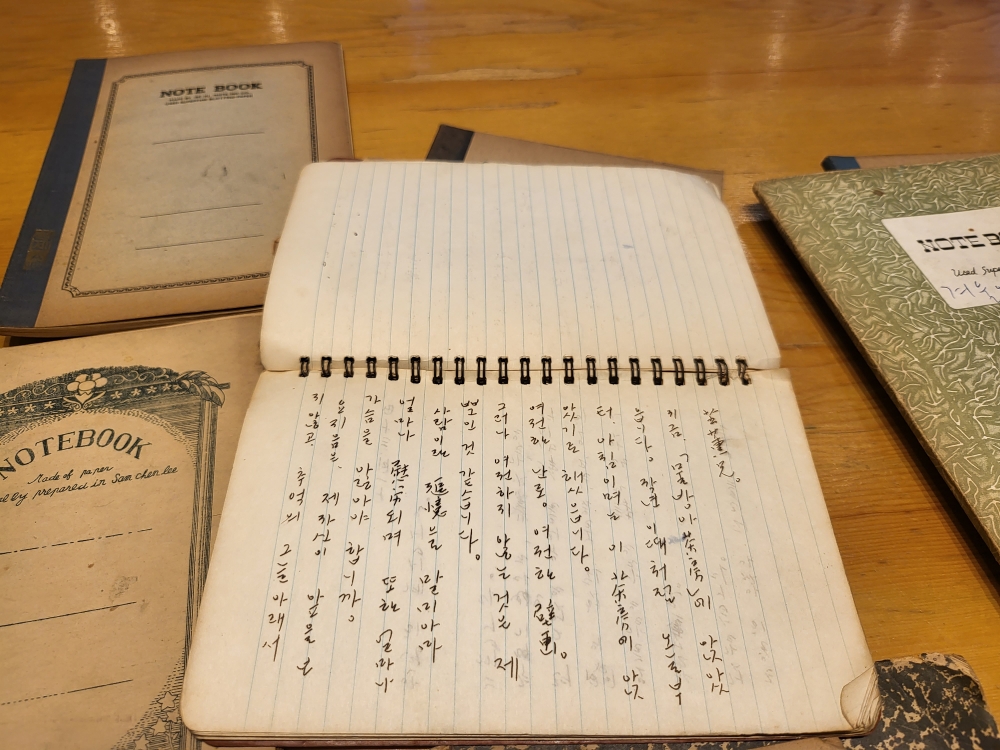 NOTE BOOK
NOTEBOOK
Made of paper
prepared in Sam chen lee
NOTE
Used
兄。
지금 「물방아茶房」에 앉았
습니다. 작년 이때처럼
터 아침이면 이 茶房에 앉
았기로 했습니다。
여전한 난로 여전한 壁画。
그러나 여전하지 않는것은 제
뿐인 것 같습니다。
사람이란 追憶을 말미아마
얼마나 慰安되며 또한 얼마나
가슴을 앓아야 합니까。
요지음은, 제 자신이 앞을 보
지 않고, 추억의 그늘아래서